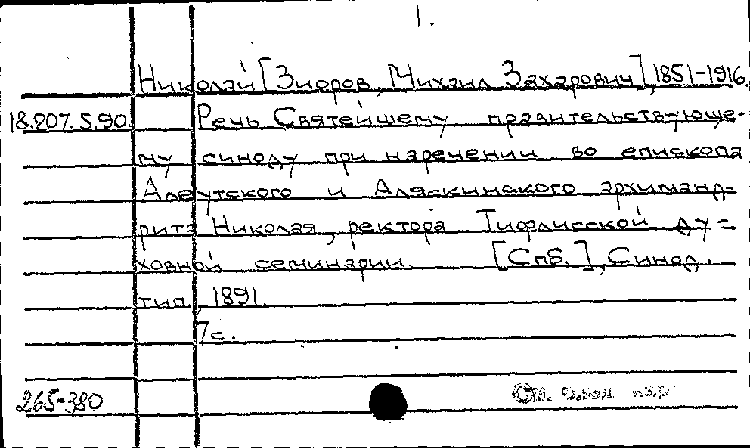 1.
Николай [Зиоров, Михаил Захарович], 1851-1916.
18.207.5.90. Речь Святейшему правительствующе-
му синоду при наречении во епископа
Алеутского и Аляскинского архиманд-
рита Николая, ректора Тифлисской ду-
ховной семинарии. [Спб.], Синод.
тип., 1891.
7с.
265-380